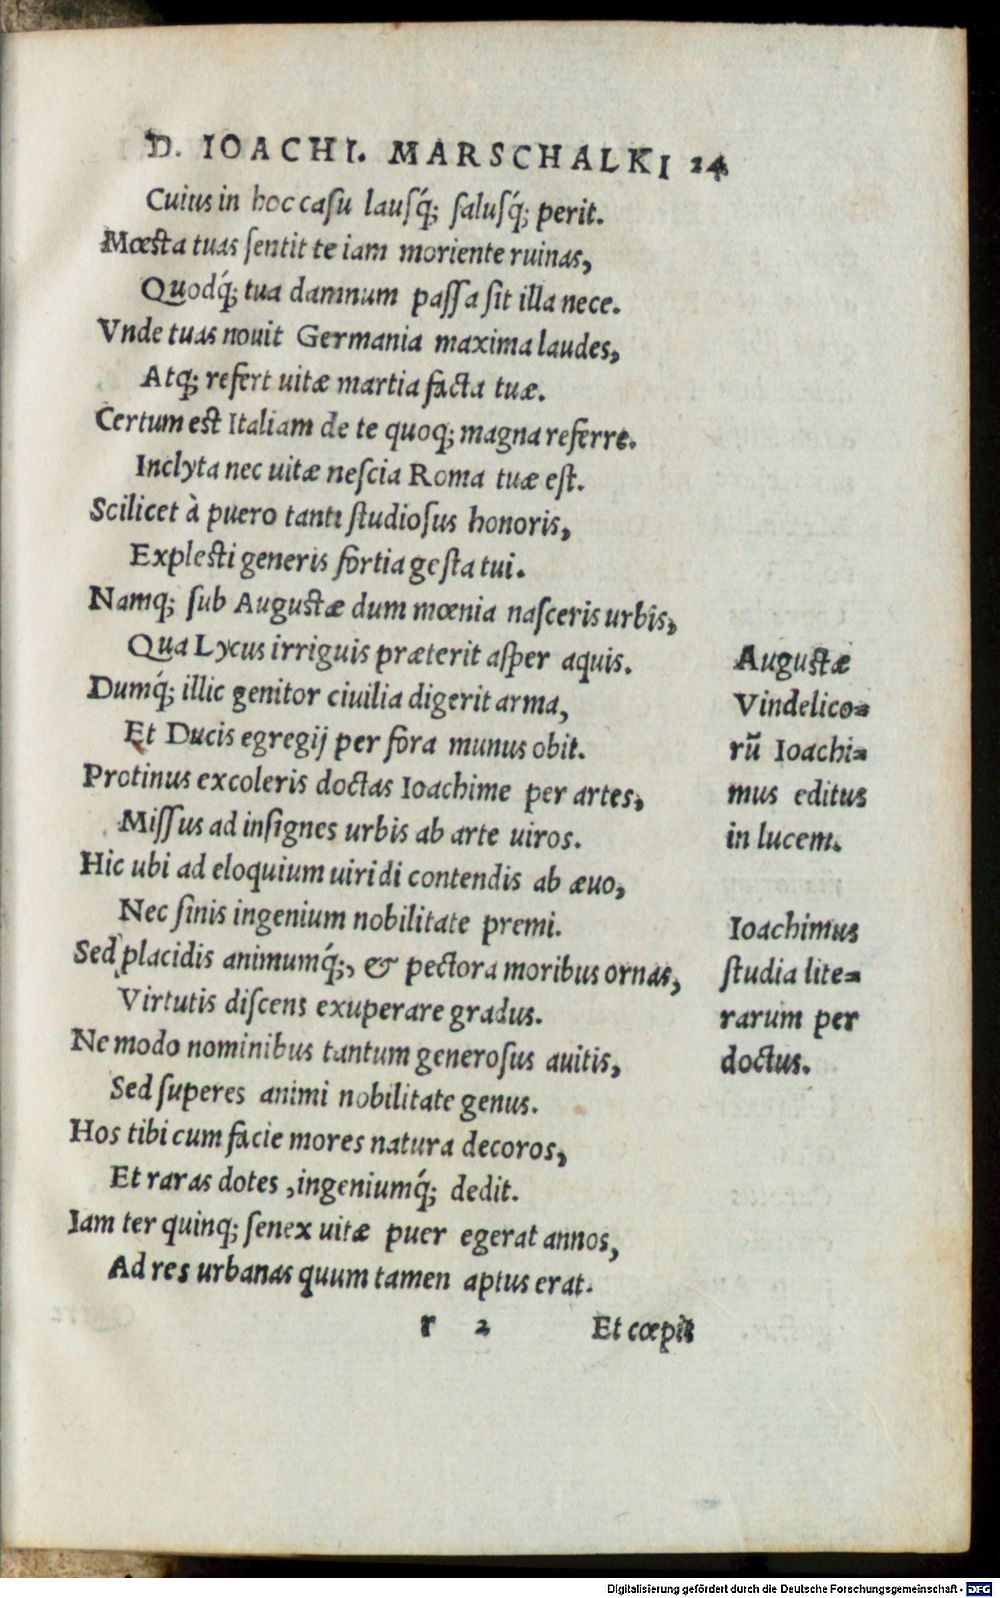 D. IOACHI. MARSCHALKI 24
Cuius in hoc casu lausq́; salusq́; perit.
Mœsta tuas sentit te iam moriente ruinas,
Quodq́; tua damnum passa sit illa nece.
Vnde tuas nouit Germania maxima laudes,
Atq; refert uitæ martia facta tuæ.
Certum est Italiam de te quoq; magna referre.
Inclyta nec uitæ nescia Roma tuæ est.
Scilicet à puero tanti studiosus honoris,
Explesti generis fortia gesta tui.
Namq; sub Augustæ dum mœnia nasceris urbis,
Qua Lycus irriguis præterit asper aquis.
Dumq́; illic genitor ciuilia digerit arma,
Et Ducis egregij per fora munus obit.
Protinus excoleris doctas Ioachime per artes,
Missus ad insignes urbis ab arte uiros.
Hic ubi ad eloquium uiridi contendis ab æuo,
Nec sinis ingenium nobilitate premi.
Sed placidis animumq́;, & pectora moribus ornas,
Virtutis discens exuperare gradus.
Ne modo nominibus tantum generosus auitis,
Sed superes animi nobilitate genus.
Hos tibi cum facie mores natura decoros,
Et raras dotes, ingeniumq́; dedit.
Iam ter quinq; senex uitæ puer egerat annos,
Ad res urbanas quum tamen aptus erat.
r 2 Et cœpit
Augustæ
Vindelico=
rũ Ioachi=
mus editus
in lucem.
Ioachimus
studia lite=
rarum per
doctus.
Digitalisierung gefördert durch die Deutsche Forschungsgemeinschaft - DFG